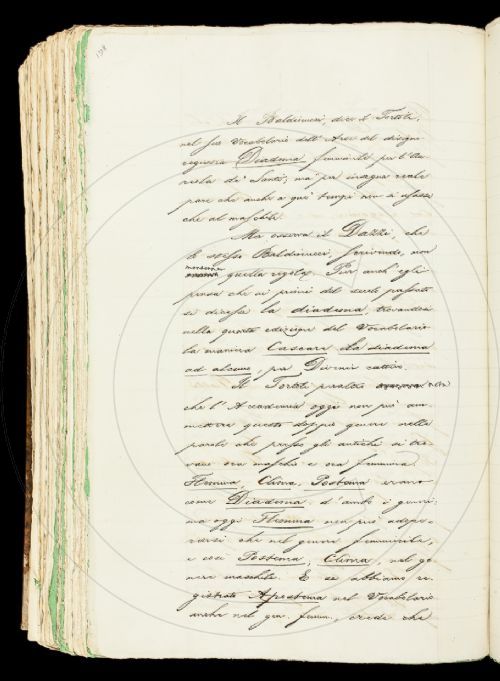 198
Il Baldinucci, dice il Tortoli,
nel suo Vocabolario dell'Arte del disegno
registra Diadema femminile per l'Au-
reola de' Santi; ma per insegna reale
pare che anche a que' tempi non si usasse
che al maschile.
Ma osserva il Dazzi, che
lo stesso Baldinucci, scrivendo, non
quella regola. Pur anch'egli
pensa che ai primi del secolo passato
si dicesse la diadema, trovandosi
nella quarta edizione del Vocabolario
la maniera Cascare la diadema
ad alcuno, per Divenir cattivo.
Il Tortoli peraltro nota
che l'Accademia oggi non può am-
mettere questo doppio genere nelle
parole che presso gli antichi si tro-
vano ora maschio e ora femmina.
Flemma, Clima, Postema erano
come Diadema, d'ambo i generi;
ma oggi Flemma non può adope-
rarsi che nel genere femminile,
e così Postema, Clima, nel ge-
nere maschile. E se abbiamo re-
gistrato Apostema nel Vocabolario
anche nel gen. femm., crede che